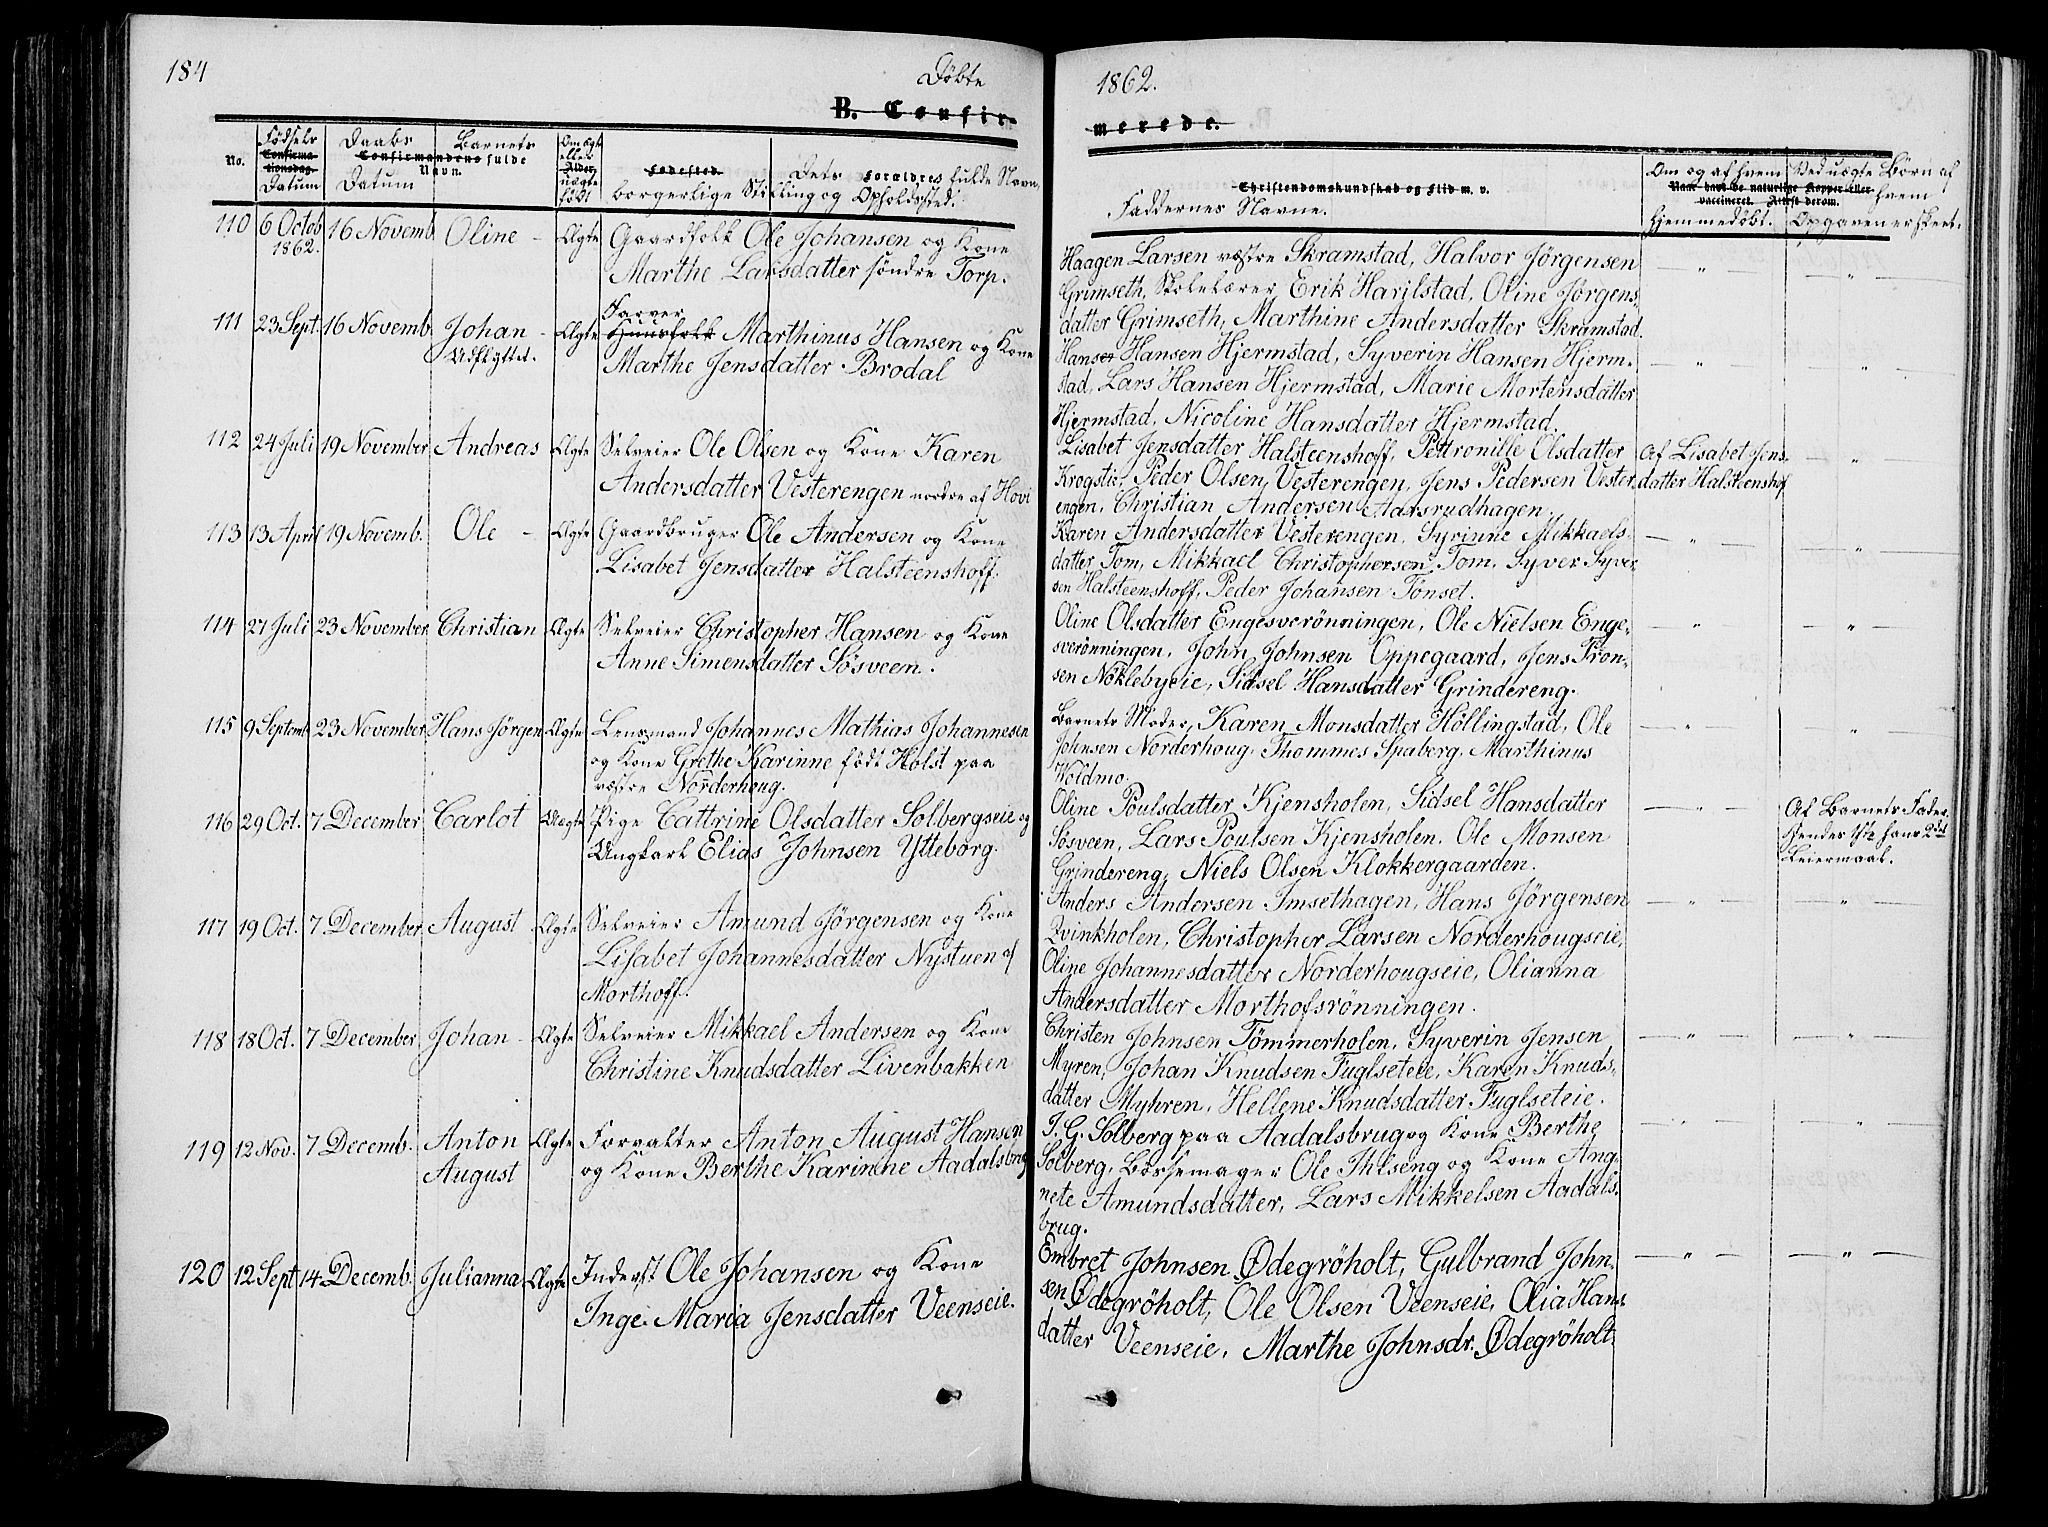 184
Döbte
1862.
B. Confir-
merede.
No.
Fødsels
Confirma-
tionsdag.
Datum
Daabs
Confirmandens fulde
Datum
Barnets
Navn.
Om ægte
eller
Alder.
uægte
født
Fødested
Dets Forældres fulde Navn,
borgerlige Stilling og Opholdssted.
Christendomskundskab og Flid m. v.
Faddernes Navne.
Om og af hvem
Naar havt de naturlige Kopper eller
vaccineret. Attest derom.
hjemmedøbt.
Ved uægte Børn af
hvem
Opgaven er skeet.
110 6 Octob 16 Novemb. Oline - Ægte Gaardfolk Ole Johansen og Kone
1862.
Marthe Larsdatter söndre Torp.
Haagen Larsen vestre Skramstad, Halvor Jörgensen
Grimseth, Skolelærer Erik Harilstad, Oline Jørgens-
datter Grimseth, Marthine Andersdatter Skramstad.
111 23 Sept. 16 Novemb. Johan - Ægte Farver
Huusfolk Marthinus Hansen og Kone
Udflyttet. Marthe Jensdatter Brodal
Hanser Hansen Hjermstad, Syverin Hansen Hjerm-
stad, Lars Hansen Hjermstad, Marie Mortensdatter
Hjermstad, Nicoline Hansdatter Hjermstad.
112 24 Juli 19 November Andreas Ægte Selveier Ole Olsen og Kone Karen
Andersdatter Vesterengen nordre af Hovi
Lisabet Jensdatter Halsteenshoff, Pettronille Olsdatter
Krogstie, Peder Olsen Vesterengen, Jens Pedersen Vester-
engen, Christian Andersen Aarsrudhagen.
Af Lisabet Jens-
datter Halsteenshof
113 13 April 19 Novemb. Ole - Ægte Gaardbruger Ole Andersen og Kone
Lisabet Jensdatter Halsteenshoff.
Karen Andersdatter Vesterengen, Syrinne Mikkaels-
datter Tom, Mikkael Christophersen Tom, Syver Syver-
sen Halsteenshoff, Peder Johansen Tönset.
114 27 Juli 23 November Christian Ægte Selveier Christopher Hansen og Kone
Anne Simensdatter Sösveen.
Oline Olsdatter Engesverönningen, Ole Nielsen Enge-
sverönningen, John Johnsen Oppegaard, Jens Tron-
sen Nöklebyeie, Sidsel Hansdatter Grindereng.
115 9 Septemb. 23 November Hans Jörgen Ægte Lensmand Johannes Mathias Johannesen
og Kone Grethe Karinne födt Holst paa
vestre Norderhoug.
Barnets Moder, Karen Monsdatter Höllingstad, Ole
Johnsen Norderhoug, Thommes Spaberg, Marthinus
Woldmo.
116 29 Oct. 7 December Carlot Uægte Pige Cattrine Olsdatter Solbergseie og
Ungkarl Elias Johnsen Ytteborg.
Oline Poulsdatter Kjensholen, Sidsel Hansdatter
Sösveen, Lars Poulsen Kjensholen, Ole Monsen
Grindereng, Niels Olsen Klokkergaarden.
Af Barnets Fader.
Hendes 1ste hans 2det
Leiermaal.
117 19 Oct. 7 December August Ægte Selveier Amund Jörgensen og Kone
Lisabet Johannesdatter Nystuen af
Morthoff.
Anders Andersen Imsethagen, Hans Jörgensen
Qvinkholen, Christopher Larsen Norderhougseie,
Oline Johannesdatter Norderhougseie, Olianna
Andersdatter Morthofsrönningen.
118 18 Oct. 7 December Johan - Ægte Selveier Mikkael Andersen og Kone
Christine Knudsdatter Livenbakken
Christen Johnsen Tömmerholen, Syverin Jensen
Myren, Johan Knudsen Fuglseteie, Karen Knuds-
datter Myhren, Hellene Knudsdatter Fuglseteie.
119 12 Nov. 7 Decemb. Anton Ægte Forvalter Anton August Hansen
August og Kone Berthe Karinne Aadalsbrug
I. G. Solberg paa Aadalsbrug og Kone Berthe
Solberg, Börsemager Ole Ihlseng og Kone Ang-
nete Amundsdatter, Lars Mikkelsen Aadals-
brug.
120 12 Sept 14 Decemb. Julianna Ægte Inderst Ole Johansen og Kone
Inge Maria Jensdatter Veenseie.
Embret Johnsen Ødegröholt, Gulbrand John-
sen Ødegröholt, Ole Olsen Veenseie, Olia Hans-
datter Veenseie, Marthe Johnsdr. Ødegröholt.